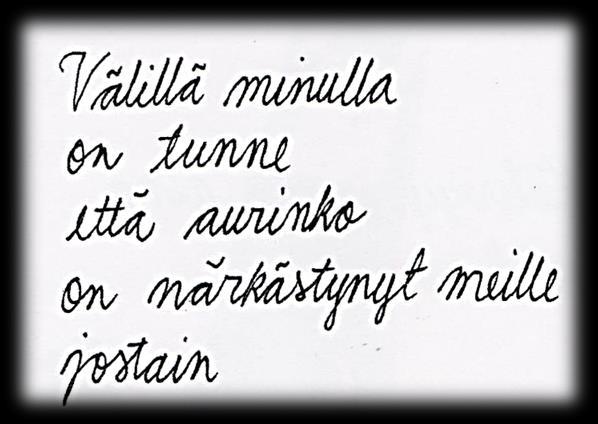 Välillä minulla
on tunne
että aurinko
on närkästynyt meille
jostain